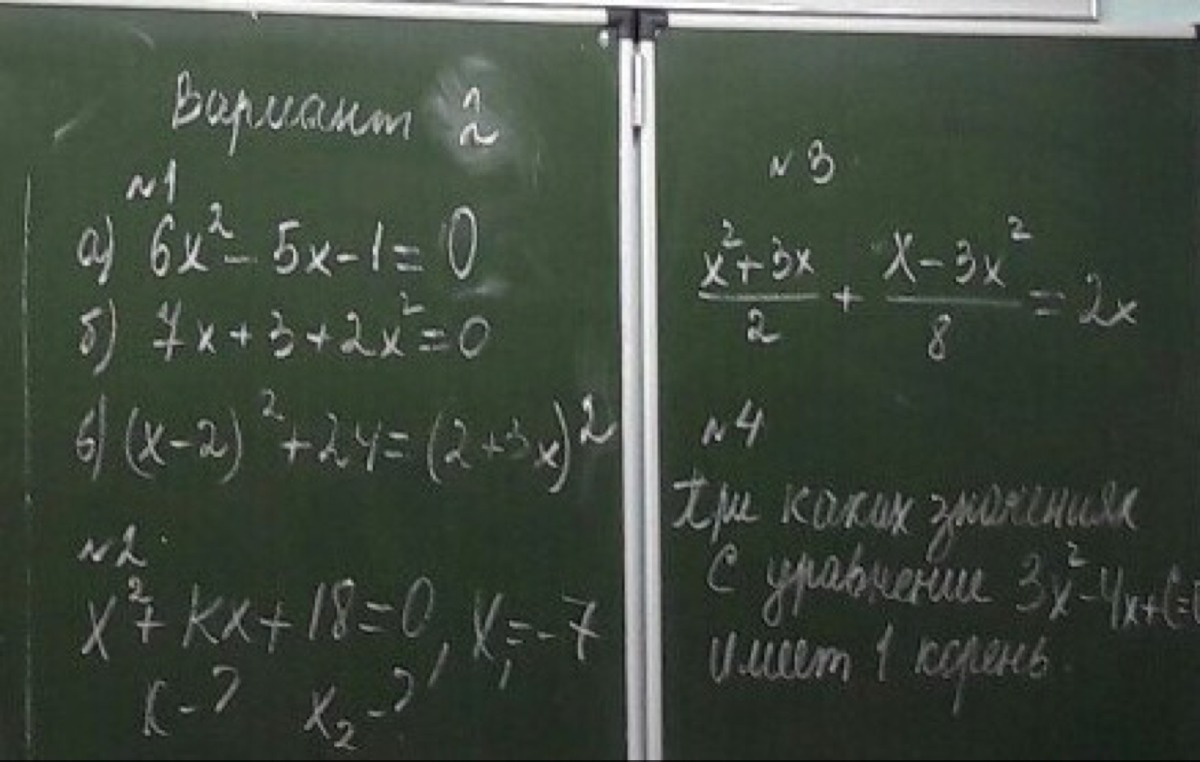 Вариант 2
№1
а) 6x² - 5x - 1 = 0
б) 7x + 3 + 2x² = 0
в) (x-2)² + 24 = (2+3x)²
№2
x² + kx + 18 = 0, x₁ = -7
k - ? x₂ - ?
№3
(x² + 3x)/2 + (x - 3x²)/8 = 2x
№4
При каких значениях
C уравнение 3x² - 4x + C =
имеет 1 корень.